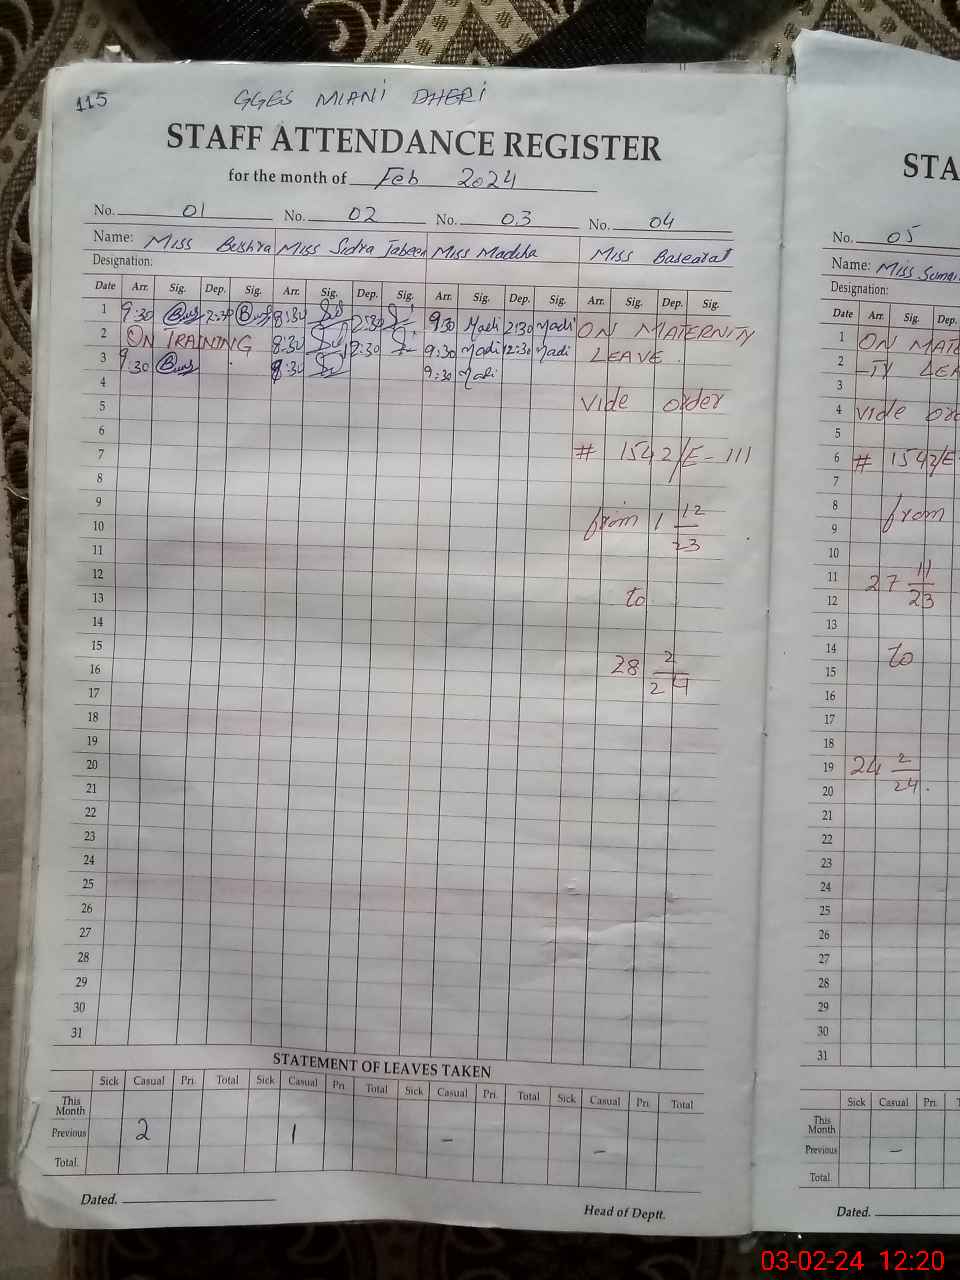 115
GGES MIANI DHERI
STAFF ATTENDANCE REGISTER
for the month of Feb 2024
No. 01 No. 02 No. 03 No. 04
Name: Miss Bushra Miss Sidra Jabeen Miss Madiha Miss Basearat
Designation:
Date Arr. Sig. Dep. Sig. Arr. Sig. Dep. Sig. Arr. Sig. Dep. Sig. Arr. Sig. Dep. Sig.
1 9:30 2:30 8:30 2:30 9:30 Madi 2:30 Madi ON MATERNITY
2 ON TRAINING 8:30 12:30 9:30 Madi 12:30 Madi LEAVE.
3 9:30 8:30 9:30 Madi
4 vide order
5
6 # 1542/E-111
7
8
9 from 1 12/23
10
11
12 to
13
14
15 28 2/24
16
17
18
19
20
21
22
23
24
25
26
27
28
29
30
31
STATEMENT OF LEAVES TAKEN
Sick Casual Pri. Total Sick Casual Pri. Total Sick Casual Pri. Total Sick Casual Pri. Total
This Month
Previous 2 1 – –
Total.
Dated.
Head of Deptt.
STA
No. 05
Name: Miss
Designation:
Date Arr. Sig. Dep.
1 ON MATE
2 -TY LEA
3
4 vide ord
5
6 # 1542/E-
7
8 from
9
10
11 27 11/23
12
13
14 to
15
16
17
18
19 24 2/24.
20
21
22
23
24
25
26
27
28
29
30
31
Sick Casual Pri. T
This Month
Previous –
Total
Dated.
03-02-24 12:20